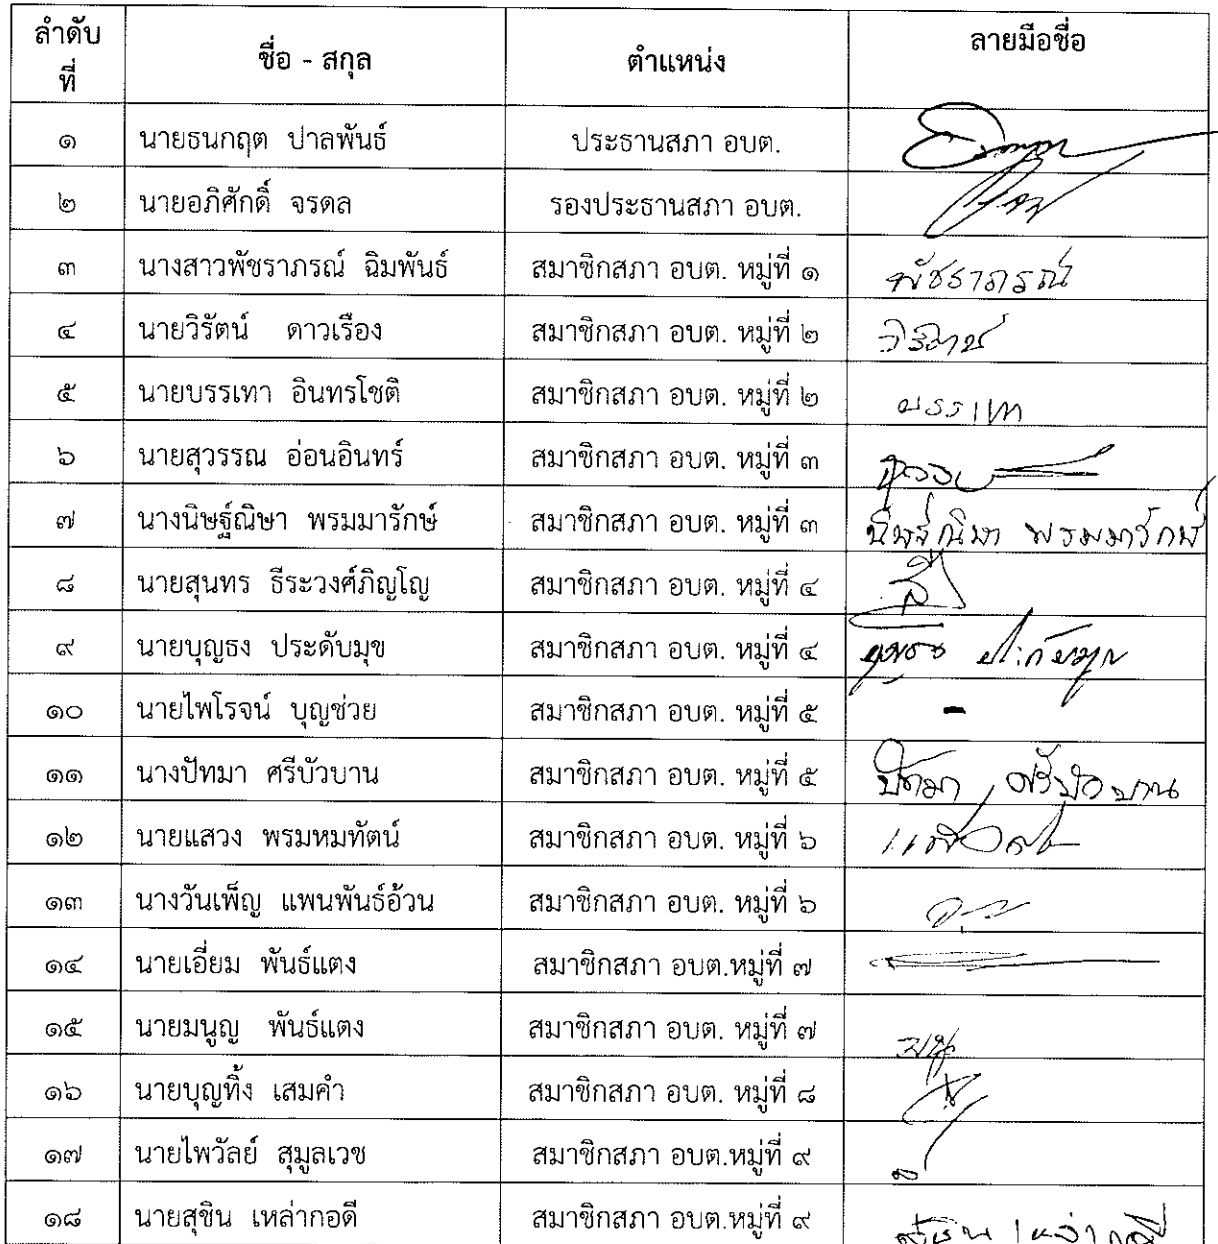 ลำดับ
ที่
ชื่อ - สกุล
ตำแหน่ง
ลายมือชื่อ
๑ นายธนกฤต ปาลพันธ์ ประธานสภา อบต.
๒ นายอภิศักดิ์ จรดล รองประธานสภา อบต.
๓ นางสาวพัชราภรณ์ ฉิมพันธ์ สมาชิกสภา อบต. หมู่ที่ ๑ พัชราภรณ์
๔ นายวิรัตน์ ดาวเรือง สมาชิกสภา อบต. หมู่ที่ ๒
๕ นายบรรเทา อินทรโชติ สมาชิกสภา อบต. หมู่ที่ ๒ บรรเทา
๖ นายสุวรรณ อ่อนอินทร์ สมาชิกสภา อบต. หมู่ที่ ๓
๗ นางนิษฐ์ณิษา พรมมารักษ์ สมาชิกสภา อบต. หมู่ที่ ๓ นิษฐ์ณิษา พรมมารักษ์
๘ นายสุนทร ธีระวงศ์ภิญโญ สมาชิกสภา อบต. หมู่ที่ ๔
๙ นายบุญธง ประดับมุข สมาชิกสภา อบต. หมู่ที่ ๔ บุญธง ประดับมุข
๑๐ นายไพโรจน์ บุญช่วย สมาชิกสภา อบต. หมู่ที่ ๕ -
๑๑ นางปัทมา ศรีบัวบาน สมาชิกสภา อบต. หมู่ที่ ๕ ปัทมา ศรีบัวบาน
๑๒ นายแสวง พรมหมทัตน์ สมาชิกสภา อบต. หมู่ที่ ๖
๑๓ นางวันเพ็ญ แพนพันธ์อ้วน สมาชิกสภา อบต. หมู่ที่ ๖
๑๔ นายเอี่ยม พันธ์แตง สมาชิกสภา อบต.หมู่ที่ ๗
๑๕ นายมนูญ พันธ์แตง สมาชิกสภา อบต. หมู่ที่ ๗
๑๖ นายบุญทิ้ง เสมคำ สมาชิกสภา อบต. หมู่ที่ ๘
๑๗ นายไพวัลย์ สุมูลเวช สมาชิกสภา อบต.หมู่ที่ ๙
๑๘ นายสุชิน เหล่ากอดี สมาชิกสภา อบต.หมู่ที่ ๙ สุชิน เหล่ากอดี